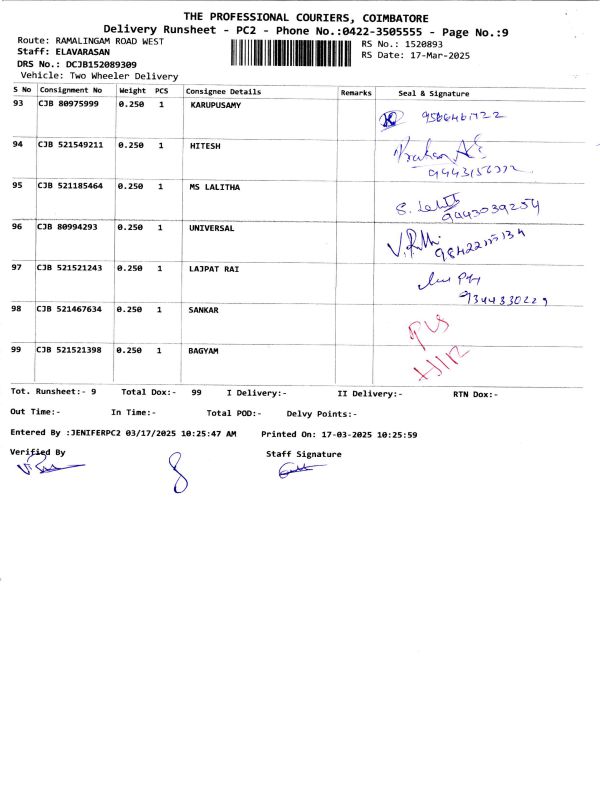 THE PROFESSIONAL COURIERS, COIMBATORE
Delivery Runsheet - PC2 - Phone No.:0422-3505555 - Page No.:9
Route: RAMALINGAM ROAD WEST
RS No.: 1520893
Staff: ELAVARASAN
RS Date: 17-Mar-2025
DRS No.: DCJB152089309
Vehicle: Two Wheeler Delivery
S No Consignment No Weight PCS Consignee Details Remarks Seal & Signature
93 CJB 80975999 0.250 1 KARUPUSAMY
94 CJB 521549211 0.250 1 HITESH
95 CJB 521185464 0.250 1 MS LALITHA
9443039254
96 CJB 80994293 0.250 1 UNIVERSAL
97 CJB 521521243 0.250 1 LAJPAT RAI
9344330229
98 CJB 521467634 0.250 1 SANKAR
99 CJB 521521398 0.250 1 BAGYAM
Tot. Runsheet:- 9 Total Dox:- 99 I Delivery:- II Delivery:- RTN Dox:-
Out Time:- In Time:- Total POD:- Delvy Points:-
Entered By :JENIFERPC2 03/17/2025 10:25:47 AM Printed On: 17-03-2025 10:25:59
Verified By Staff Signature